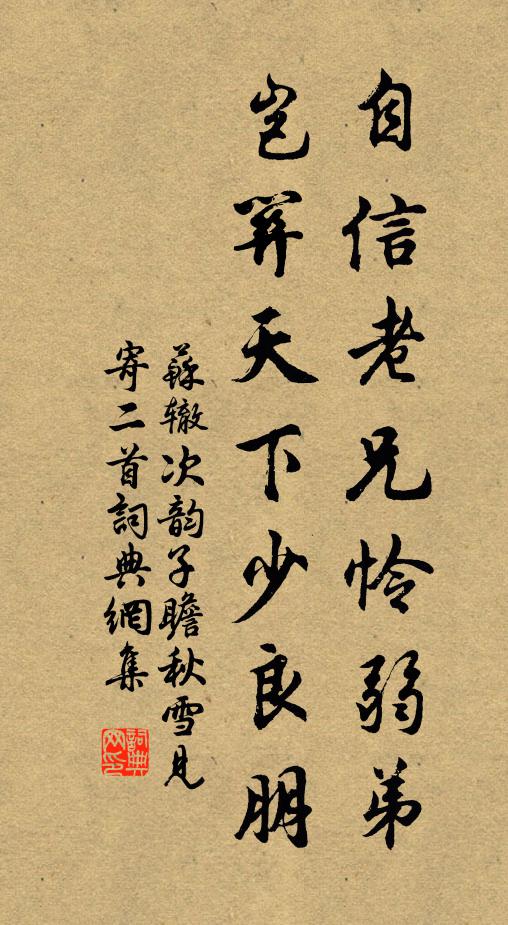 自信老兄怜弱弟
岂关天下少良朋
蘇辙次韵子瞻秋雪見
寄二首詞典網集
詞典
网印